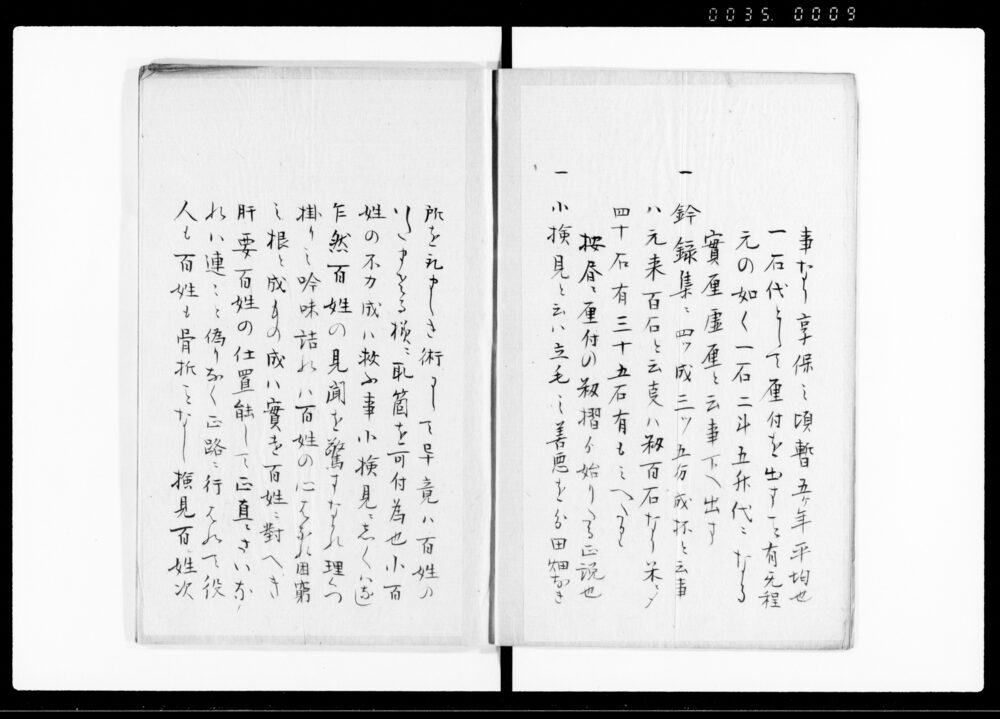 0035. 0009
事なり享保之頃暫五ケ年平均也
一石代として厘付を出す事有先程
元の如く一石二斗五升代ニなる
實厘虚厘と云事下へ出す
一 鈐録集ニ四ツ成三ツ五分成抔と云事
ハ元来百石と云草ハ籾百石なり米ニ〆
四十石有三十五石有もミへたり
按昼ニ厘付の籾摺か始りたる正説也
一 小検見と云ハ立毛之善悪を分田畑なき
所を礼しき術にして畢竟ハ百姓の
様ニ恥箇を可付為也小百
姓の不力成ハ救ふ事小検見ニしく
乍然百姓の見聞を驚すなれ理くつ
掛りニ吟味詰れハ百姓の心はなれ困窮
之根と成もの成ハ實を百姓ニ對へき
肝要百姓の仕置能して正直ニさいなし
れハ連ニと偽りなく正路ニ行はれて役
人も百姓も骨折ことなし検見百姓次